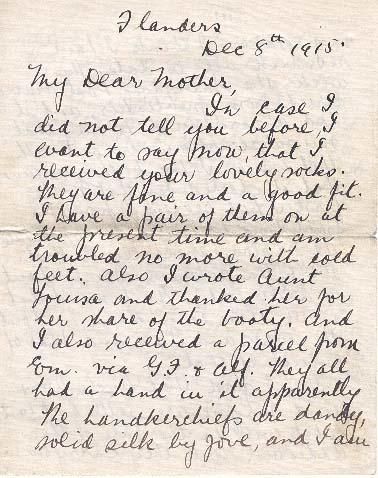 Flanders
Dec 8th 1915.
My Dear Mother,
In case I
did not tell you before, I
want to say now, that I
received your lovely socks.
They are fine and a good fit.
I have a pair of them on at
the present time and am
troubled no more with cold
feet. Also I wrote Aunt
Louisa and thanked her for
her share of the booty. And
I also received a parcel from
Em. via G.F. & Alf. They all
had a hand in it apparently
The handkerchiefs are dandy,
solid silk by jove, and I am